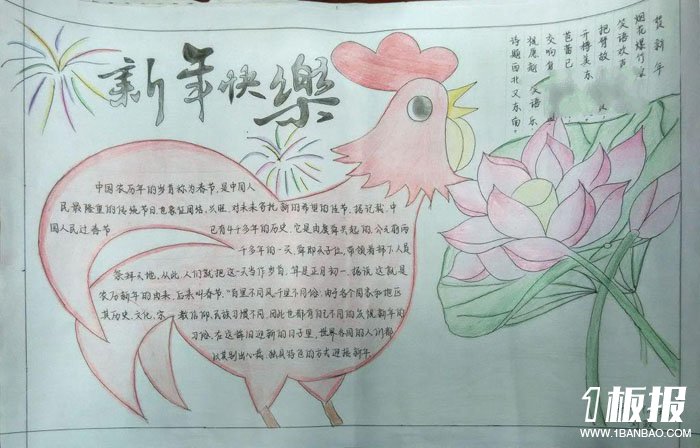 新年快樂
贺新年
烟花爆竹
笑语欢声
把臂故
开樽美东
芭蕾已
交响复
祝愿朝 笑语乐
诗期西北又东南。
中国农历年的岁首称为春节,是中国人
民最隆重的传统节日也象征团结、兴旺,对未来寄托新的希望的佳节。据记载,中
国人民过春节 已有4千多年的历史,它是由虞舜兴起的。公元前两
千多年的一天,舜即天子位,带领着部下人员
祭拜天地。从此,人们就把这一天当作岁首,算是正月初一。据说这就是
农历新年的由来,后来叫春节。“百里不同风千里不同俗”由于各个国家和地区
其历史、文化、宗 教信仰、民族习惯不同,因此也都有自己不同的庆祝新年的
习俗。在这辞旧迎新的日子里,世界各国的人们都
以其别出心裁、独具特色的方式迎接新年
1板报
WWW.1BANBAO.COM